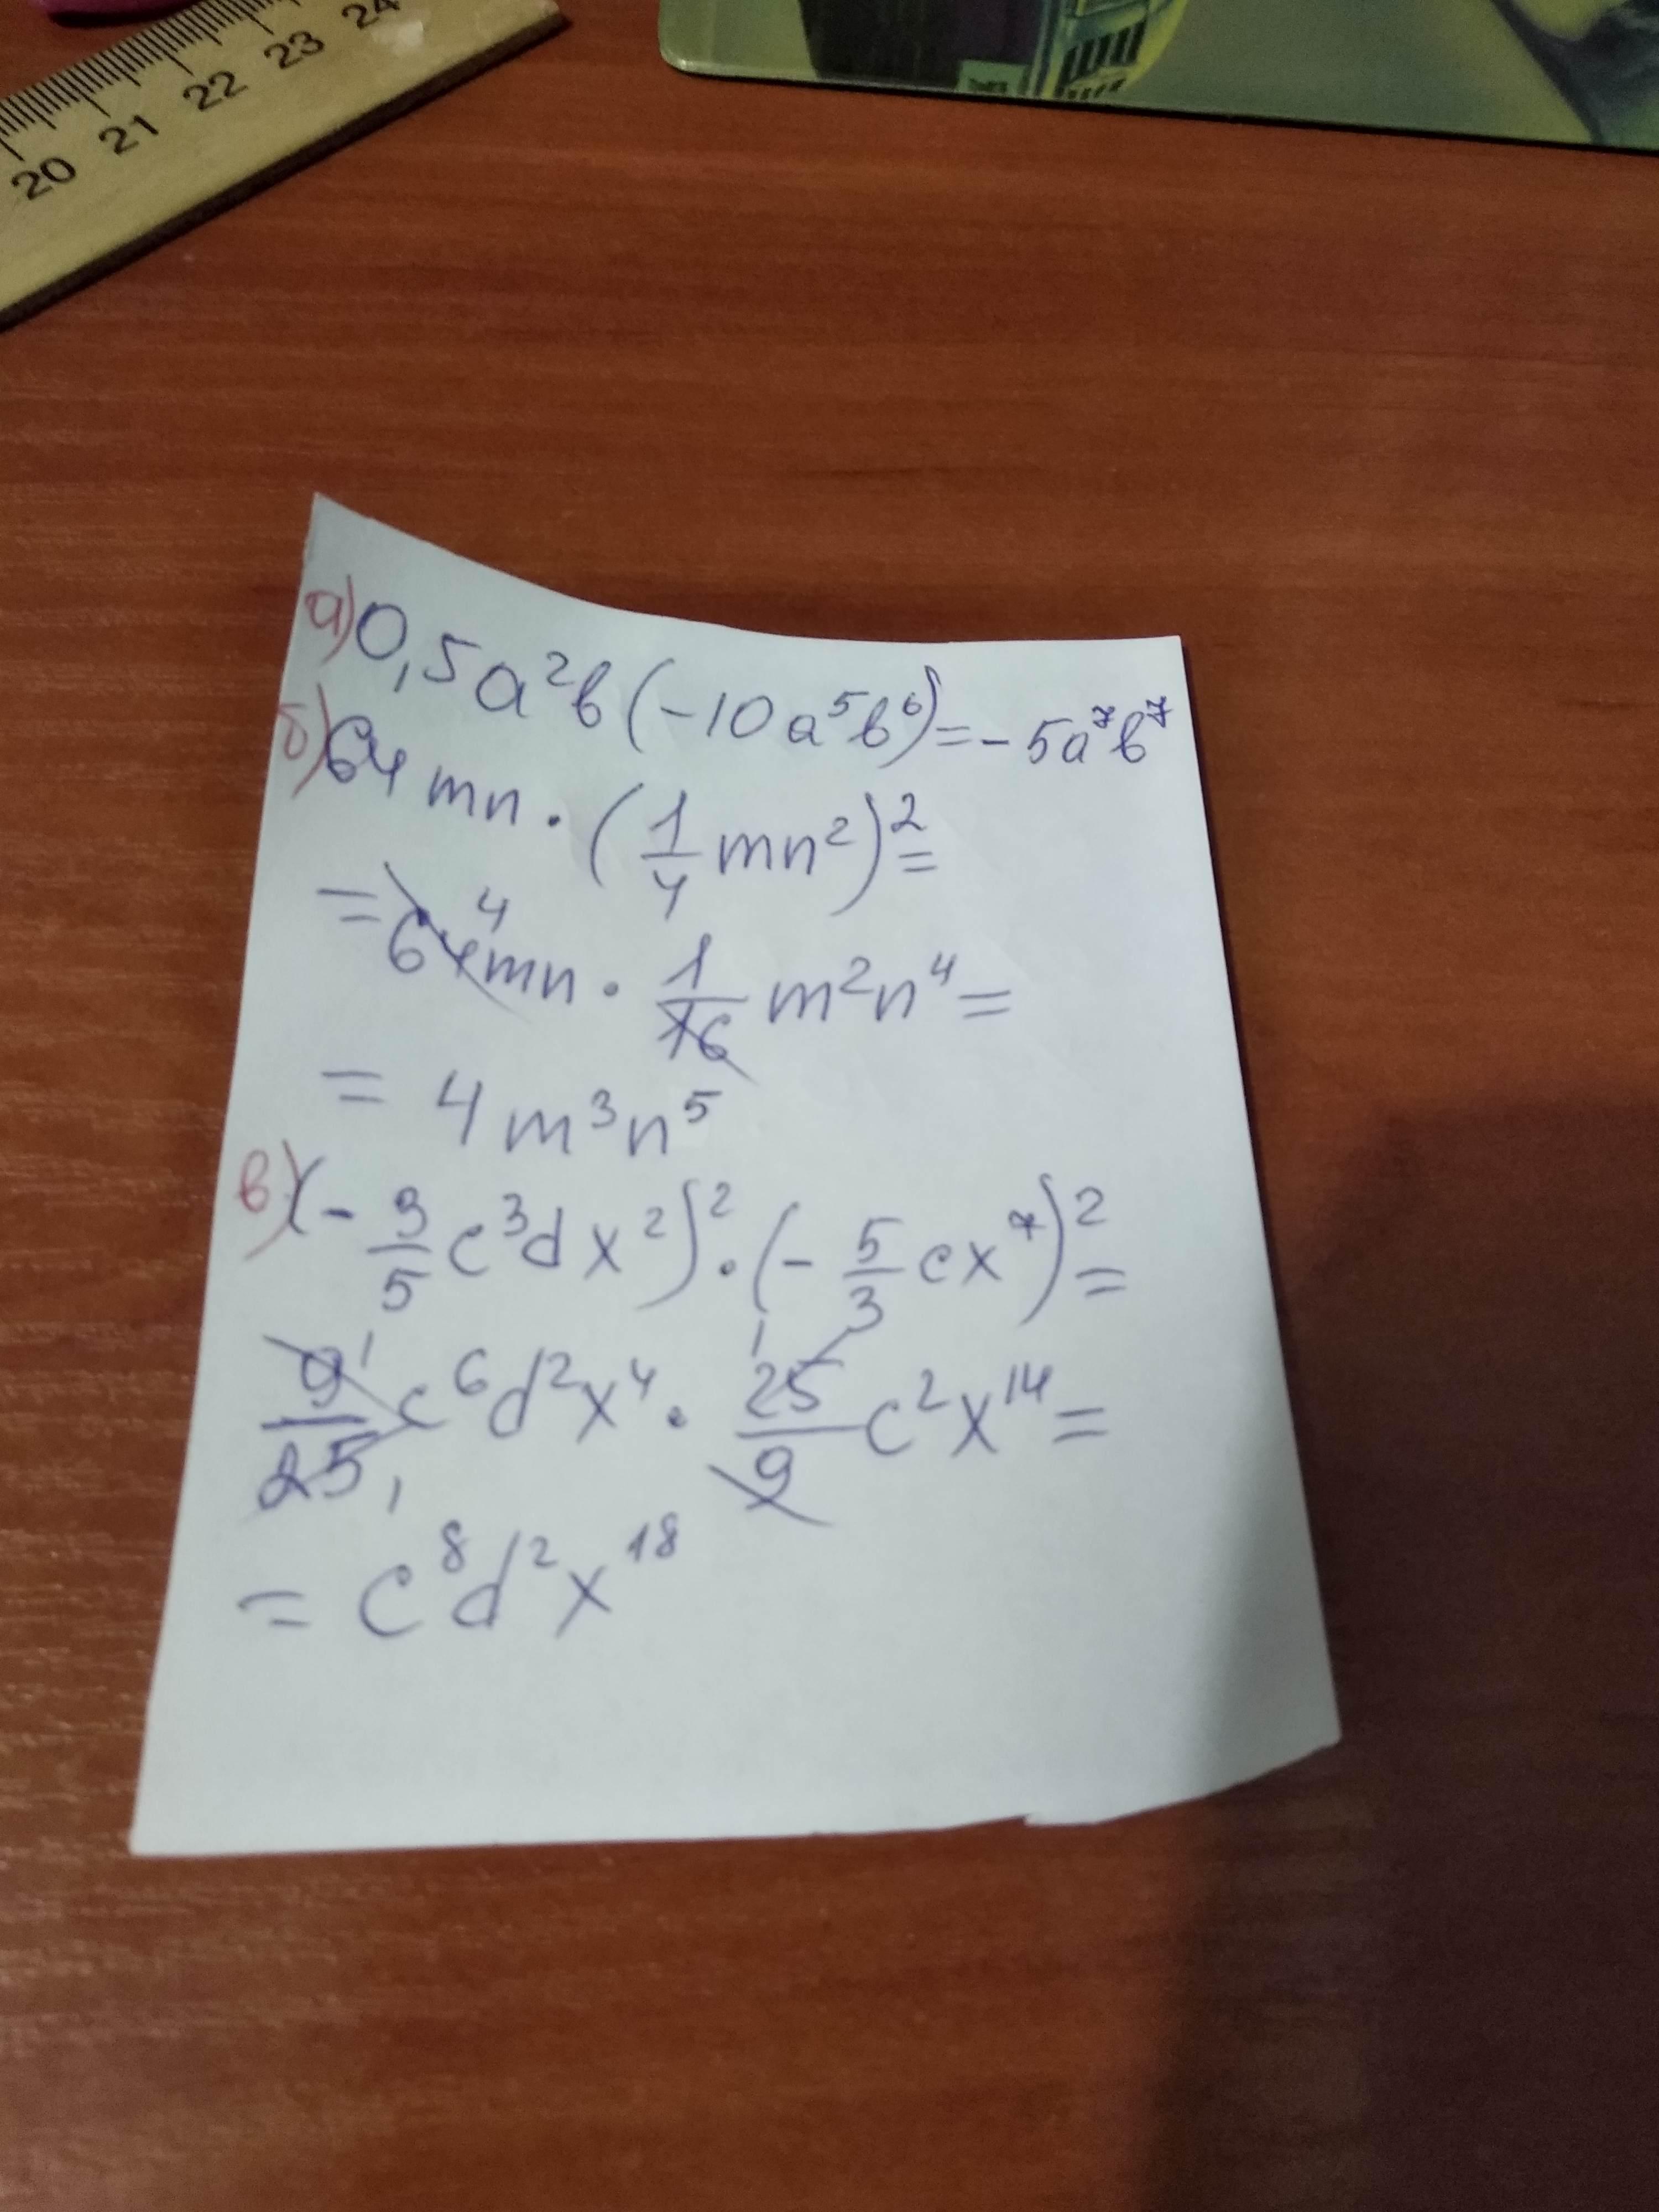 20 21 22 23 24
а) 0,5a²b(-10a⁵b⁶)=-5a⁷b⁷
б) 64mn·(1/4 mn²)²=
=64⁴mn·1/16 m²n⁴=
=4m³n⁵
в) (-3/5 c³dx²)²·(-5/3 cx⁷)²=
9¹/25₁ c⁶d²x⁴·¹25/9 c²x¹⁴=
=c⁸d²x¹⁸